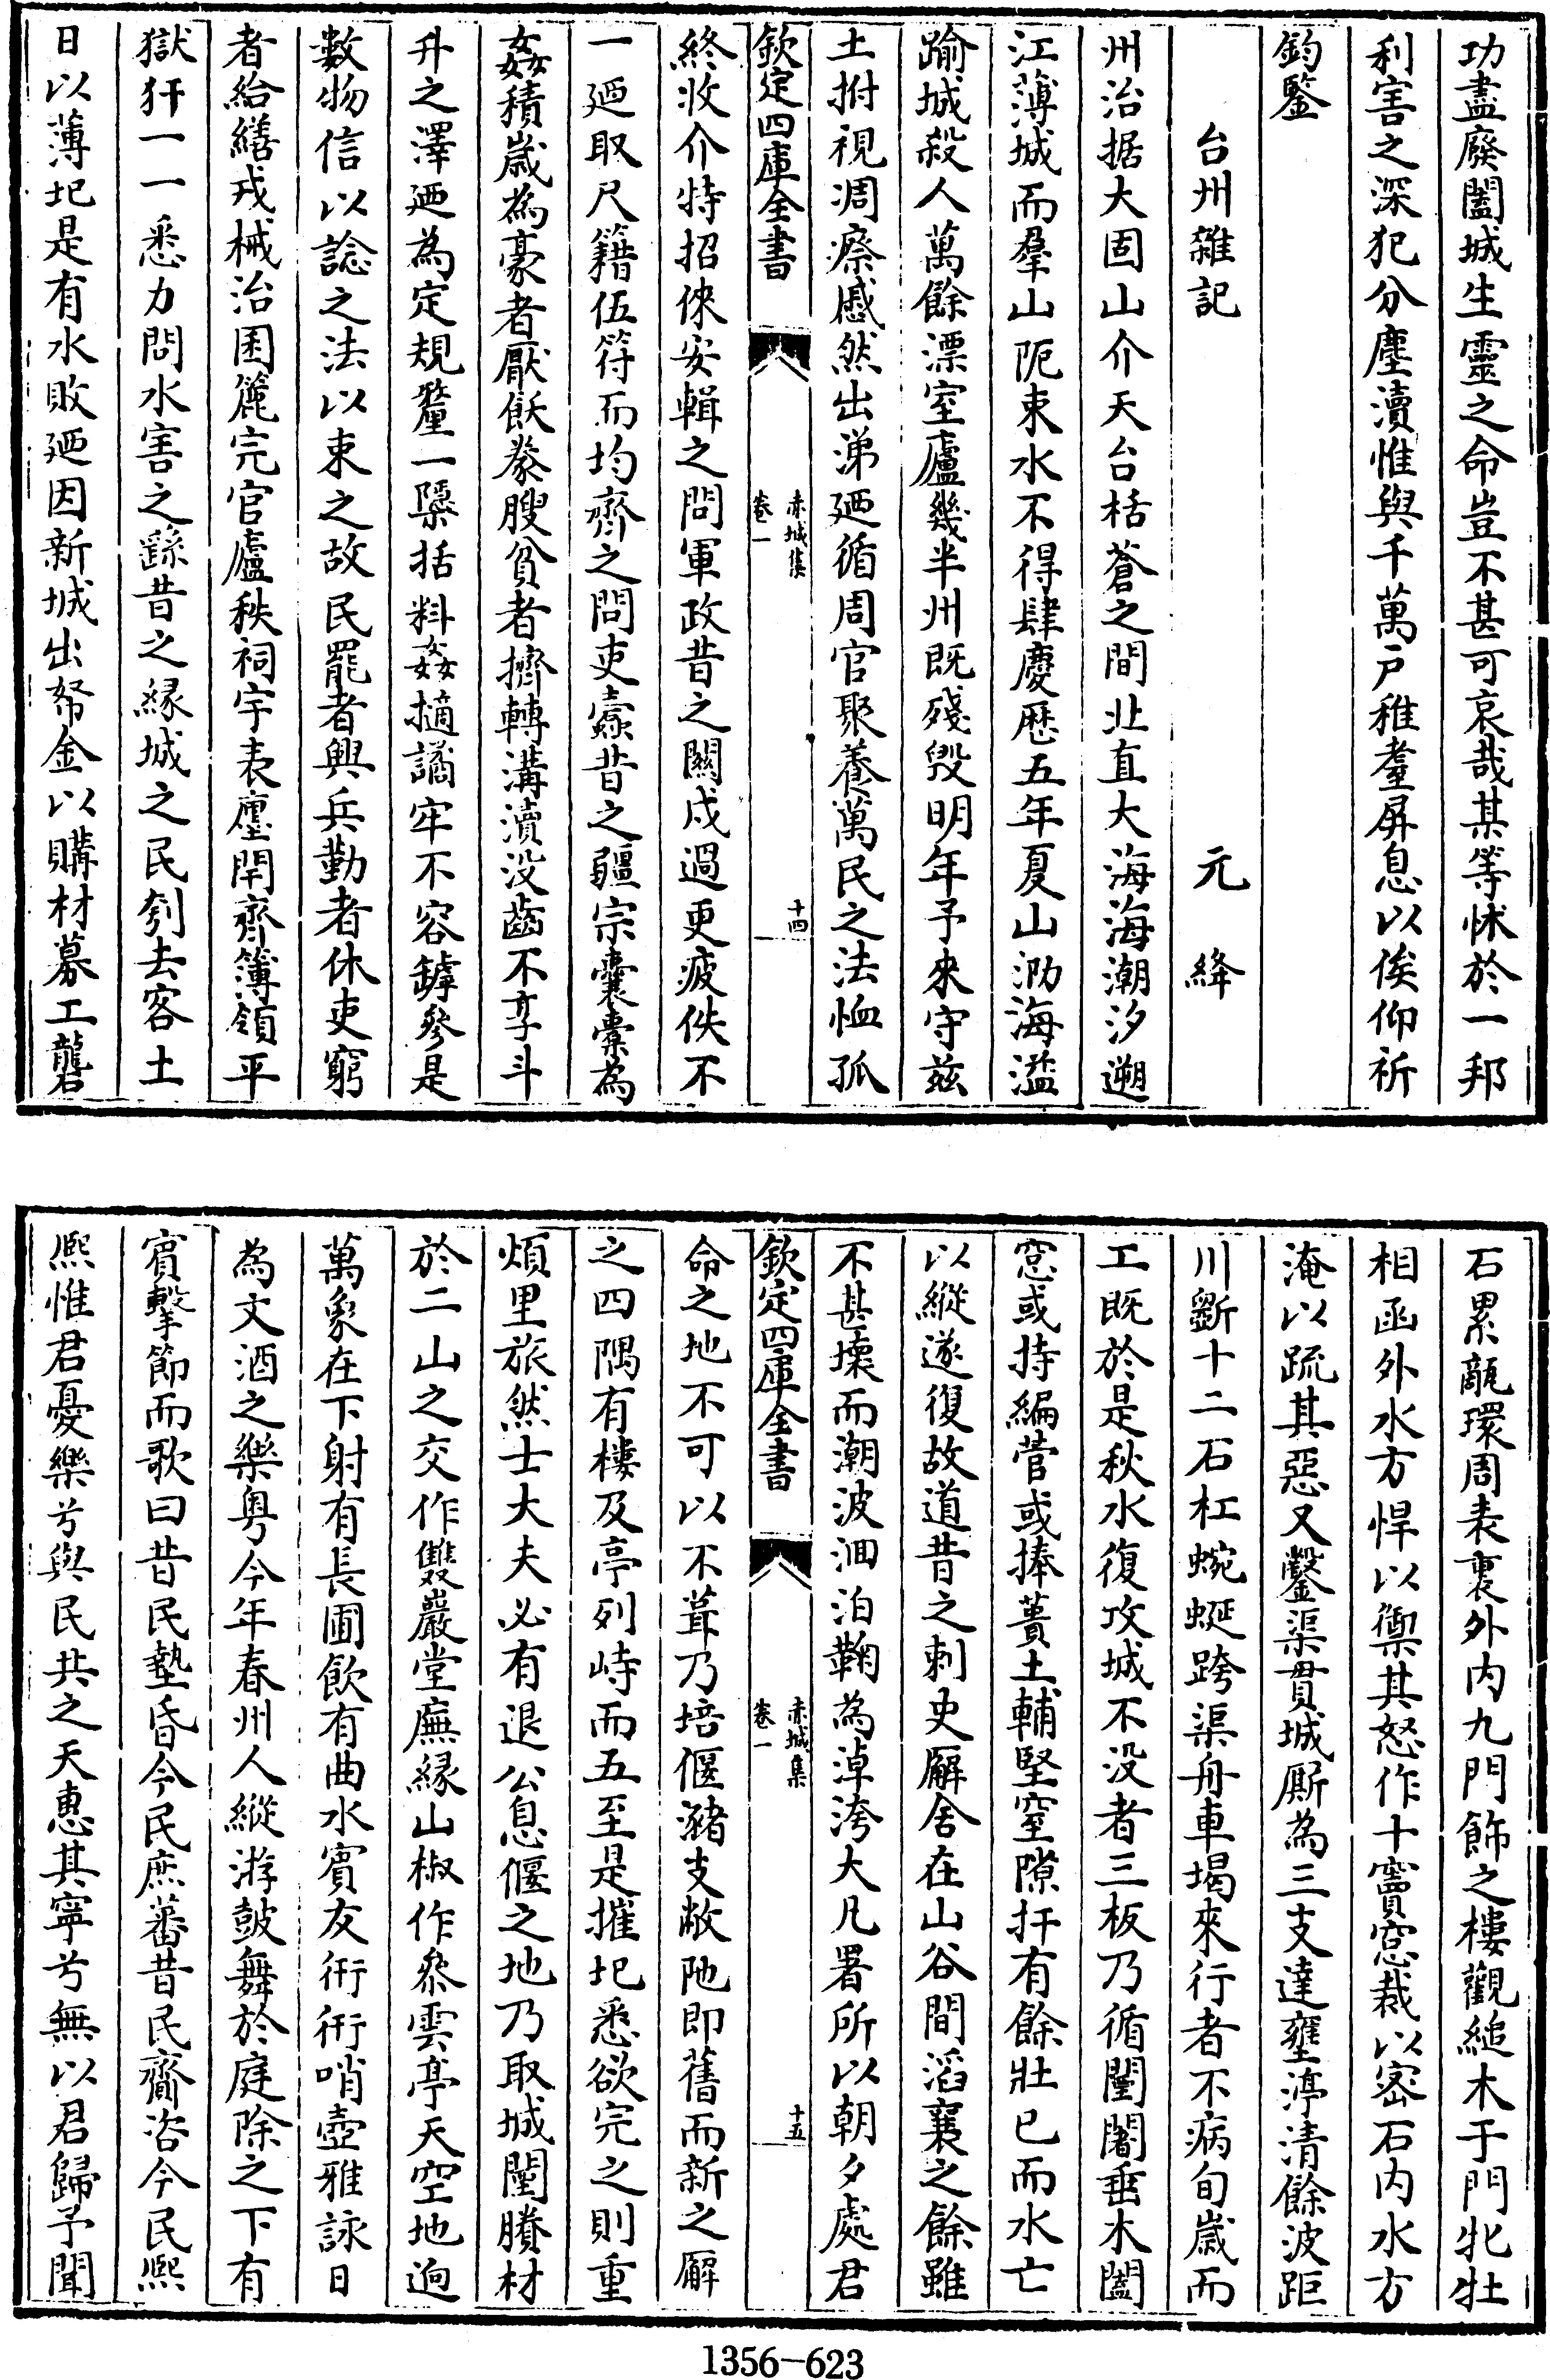 功盡廢闔城生靈之命豈不甚可哀哉某等怵於一邦
利害之深犯分塵瀆惟與千萬戶稚耋屏息以俟仰祈
鈞鑒
台州雜記
元絳
州治据大固山介天台栝蒼之間北直大海海潮汐遡
江薄城而羣山阨束水不得肆慶歴五年夏山泐海溢
踰城殺人萬餘漂室廬幾半州既殘毁明年予來守兹
土拊視凋瘵慼然出涕廼循周官聚養萬民之法恤孤
欽定四庫全書
赤城集
卷一
十四
終收介特招倈安輯之問軍政昔之闕戍過更疲佚不
一廼取尺籍伍符而均齊之問吏蠧昔之疆宗囊橐為
姦積歲為豪者厭飫豢膄貧者擠轉溝瀆没齒不享斗
升之澤廼為定規釐一檃括料姦擿譎牢不容罅參是
數物信以諗之法以束之故民罷者興兵勤者休吏窮
者給繕戎械治囷簏完官廬秩祠宇表廛閈齊簿領平
獄犴一一悉力問水害之繇昔之縁城之民刳去客土
日以薄圯是有水敗廼因新城出帑金以購材募工礱
石累甋環周表裏外内九門飾之樓觀縋木于門牝牡
相函外水方悍以禦其怒作十竇窓裁以密石内水方
淹以疏其惡又鑿渠貫城厮為三支達壅渟清餘波距
川斵十二石杠蜿蜒跨渠舟車朅來行者不病旬歲而
工既於是秋水復攻城不没者三板乃循闉闍垂木闔
窓或持編菅或捧蕢土輔堅窒隙扞有餘壯已而水亡
以縱遂復故道昔之刺史廨舍在山谷間滔襄之餘雖
不甚壞而潮波洄泊鞠為淖洿大凡署所以朝夕處君
欽定四庫全書
赤城集
卷一
十五
命之地不可以不葺乃培偃瀦支敝阤即舊而新之廨
之四隅有樓及亭列峙而五至是摧圯悉欲完之則重
煩里旅然士大夫必有退公息偃之地乃取城闉賸材
於二山之交作雙巖堂廡縁山椒作叅雲亭天空地逈
萬象在下射有長圃飲有曲水賓友衎衎哨壺雅詠日
為文酒之樂粤今年春州人縱游鼓舞於庭除之下有
賓擊節而歌曰昔民墊昏今民庶蕃昔民齎咨今民熙
熙惟君憂樂兮與民共之天惠其寧兮無以君歸予聞
1356-623